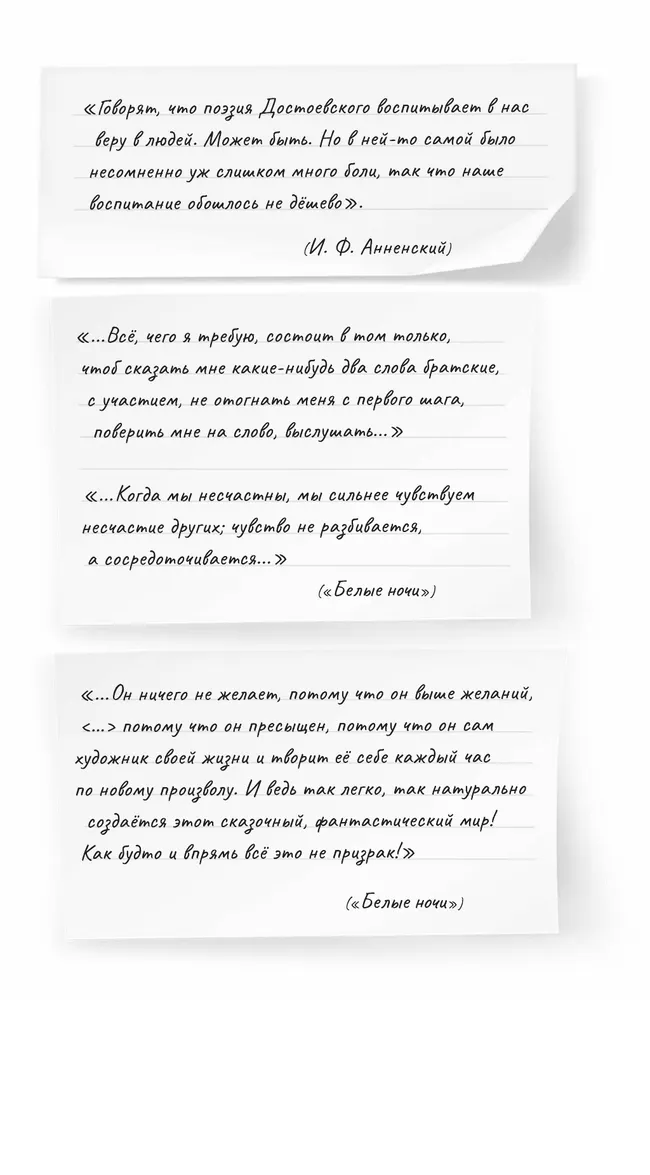 «Говорят, что поэзия Достоевского воспитывает в нас
веру в людей. Может быть. Но в ней-то самой было
несомненно уж слишком много боли, так что наше
воспитание обошлось не дёшево».
(И. Ф. Анненский)
«...Всё, чего я требую, состоит в том только,
чтоб сказать мне какие-нибудь два слова братские,
с участием, не отогнать меня с первого шага,
поверить мне на слово, выслушать...»
«...Когда мы несчастны, мы сильнее чувствуем
несчастие других; чувство не разбивается,
а сосредоточивается...»
(«Белые ночи»)
«...Он ничего не желает, потому что он выше желаний,
<...> потому что он пресыщен, потому что он сам
художник своей жизни и творит её себе каждый час
по новому произволу. И ведь так легко, так натурально
создаётся этот сказочный, фантастический мир!
Как будто и впрямь всё это не призрак!»
(«Белые ночи»)